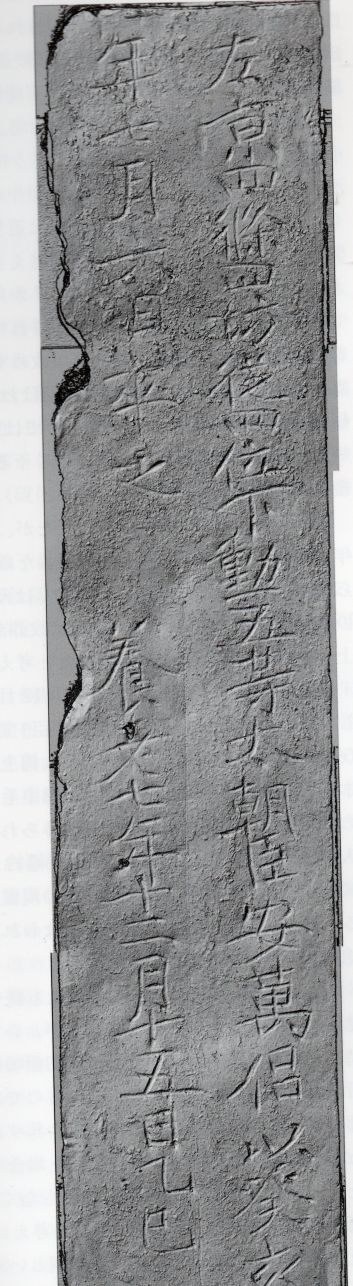 左京四條四坊従四位下勲五等太朝臣安萬侶以癸亥
年七月六日卒之 養老七年十二月十五日乙巳